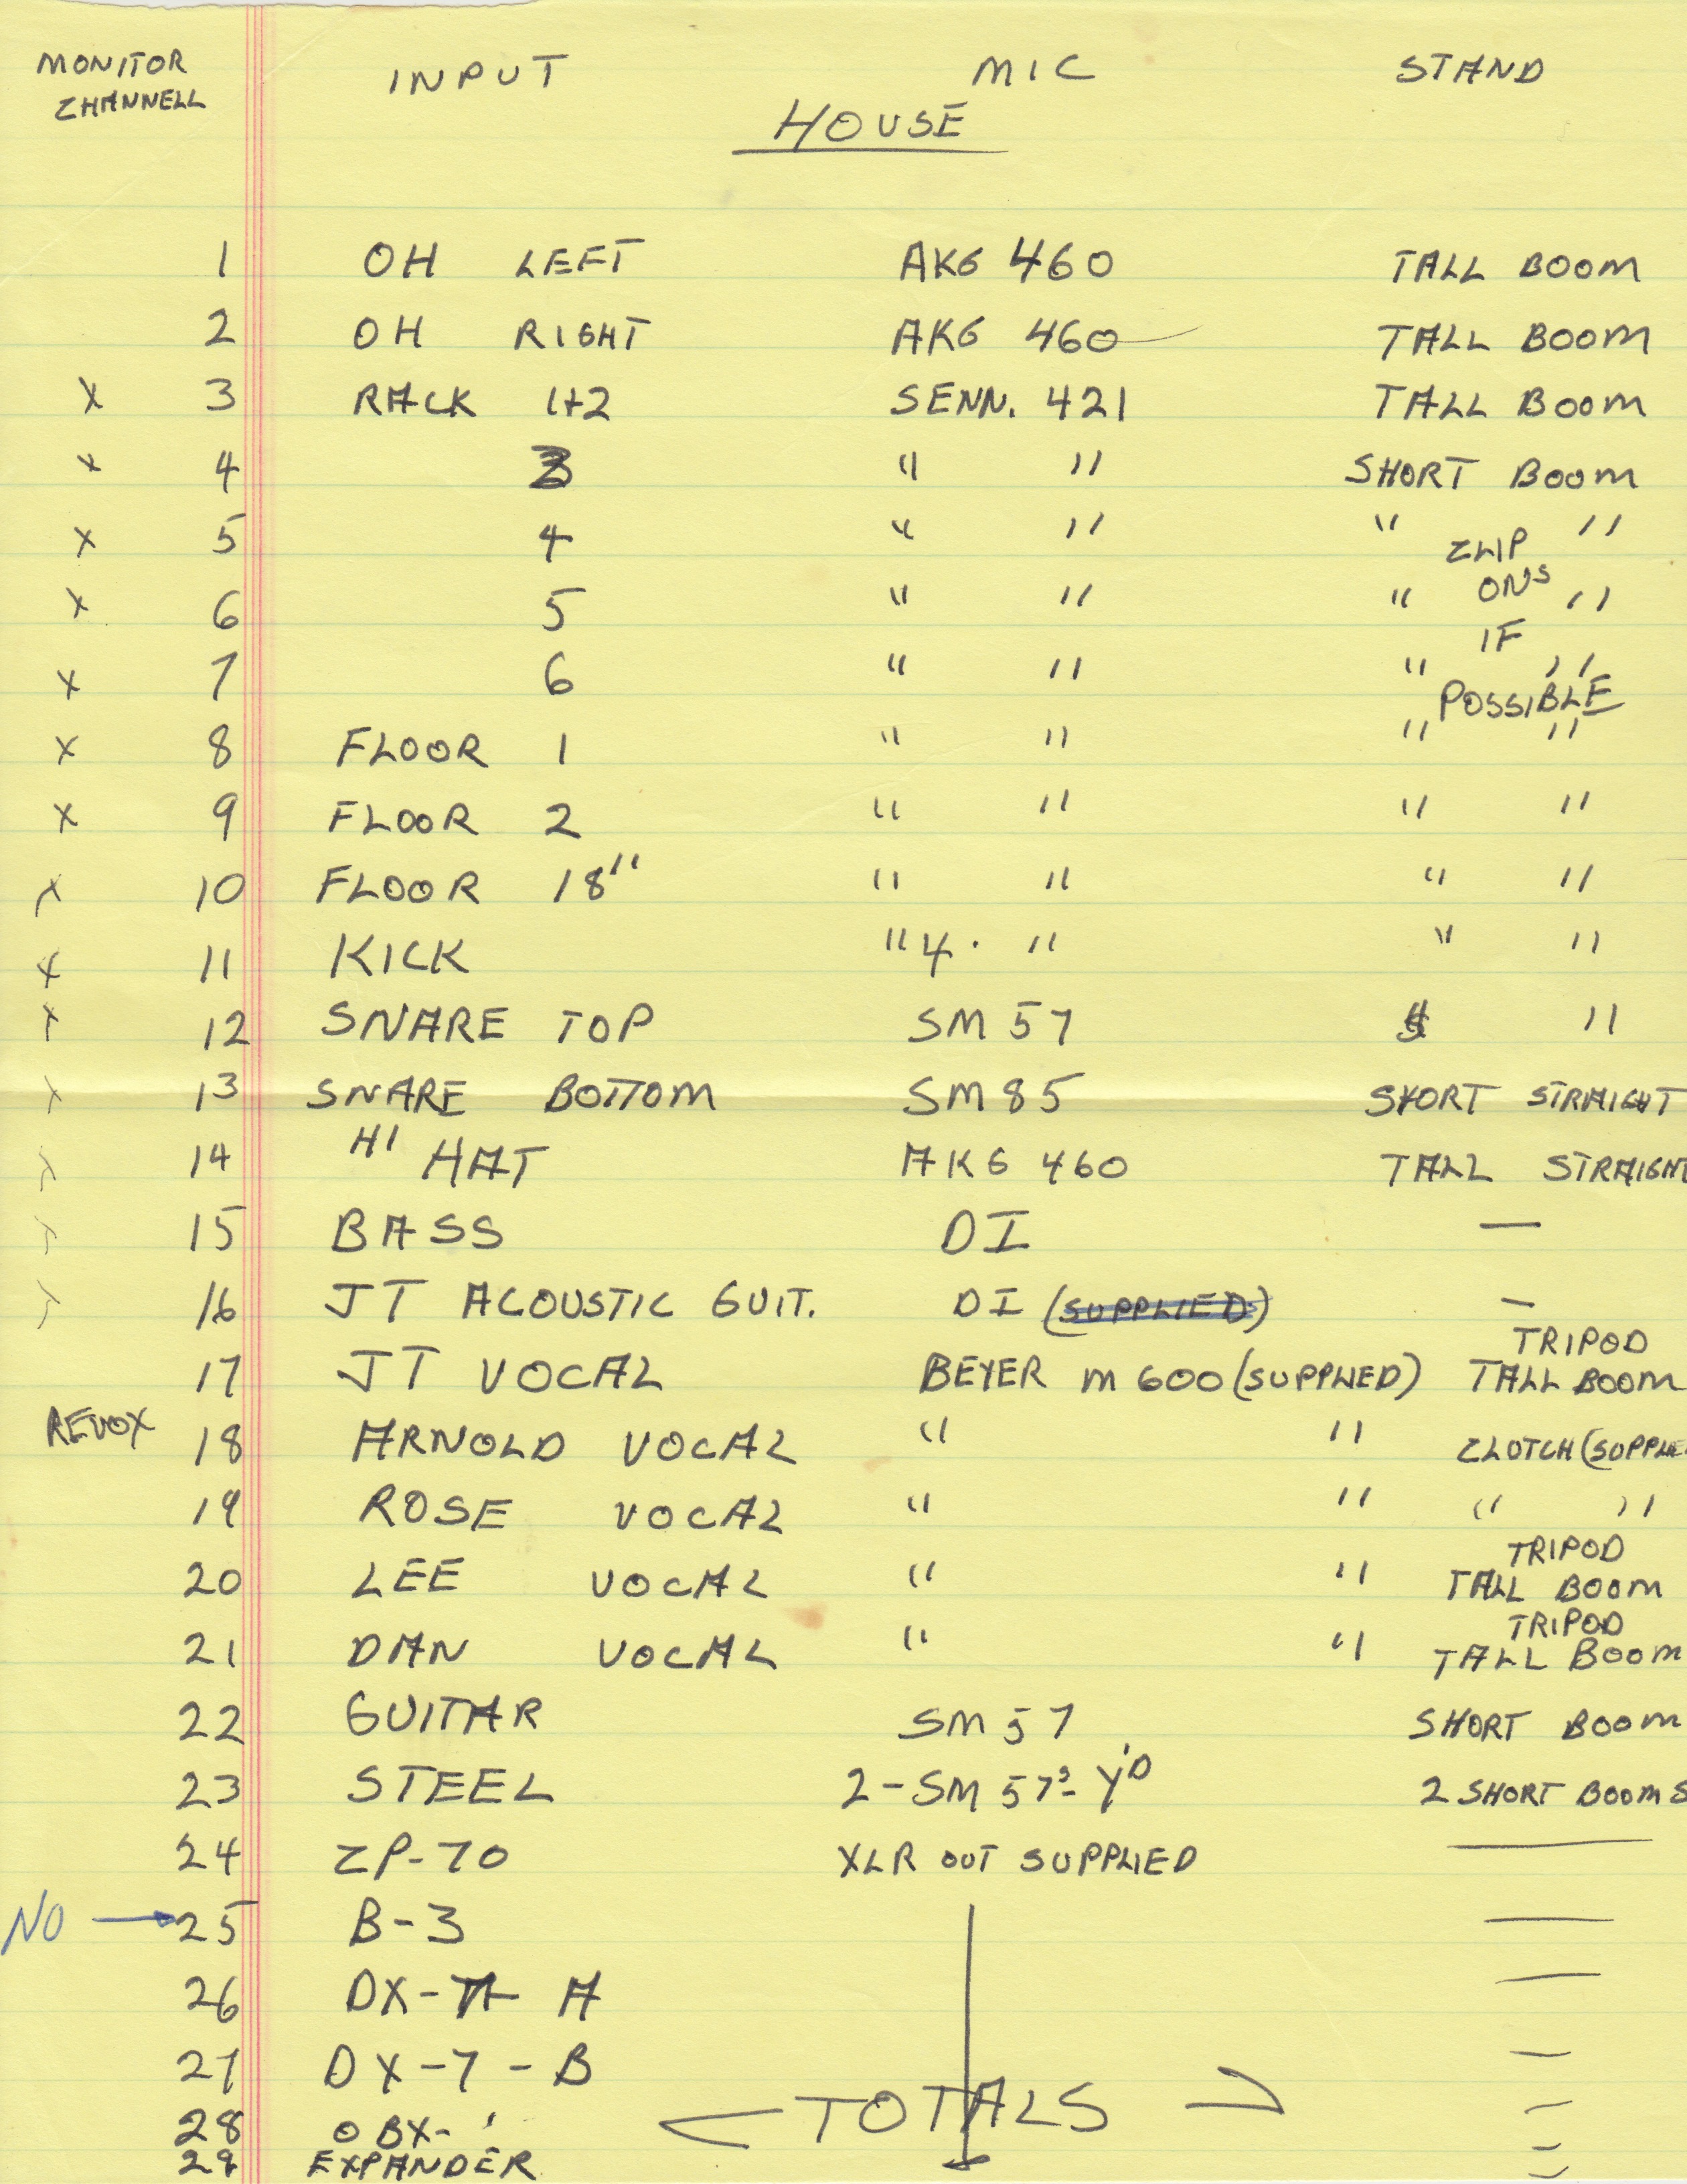 MONITOR CHANNELL INPUT MIC STAND
HOUSE
1 OH LEFT AKG 460 TALL BOOM
2 OH RIGHT AKG 460 TALL BOOM
X 3 RACK 1+2 SENN. 421 TALL BOOM
X 4 3 " " SHORT BOOM
X 5 4 " " " CLIP "
X 6 5 " " " ONS "
IF
X 7 6 " " " "
POSSIBLE
X 8 FLOOR 1 " " " "
X 9 FLOOR 2 " " " "
X 10 FLOOR 18" " " " "
X 11 KICK " 4. " " "
X 12 SNARE TOP SM 57 "
X 13 SNARE BOTTOM SM 85 SHORT STRAIGHT
X 14 HI HAT AKG 460 TALL STRAIGHT
X 15 BASS DI —
X 16 JT ACOUSTIC GUIT. DI (SUPPLIED) —
TRIPOD
17 JT VOCAL BEYER M 600 (SUPPLIED) TALL BOOM
REVOX 18 ARNOLD VOCAL " " CLUTCH (SUPPLIE
19 ROSE VOCAL " " " "
TRIPOD
20 LEE VOCAL " " TALL BOOM
TRIPOD
21 DAN VOCAL " " TALL BOOM
22 GUITAR SM 57 SHORT BOOM
23 STEEL 2-SM 57s- Y'D 2 SHORT BOOMS
24 CP-70 XLR OUT SUPPLIED —
NO → 25 B-3 —
26 DX-7 A —
27 DX-7-B —
28 OBX- TOTALS —
29 EXPANDER —